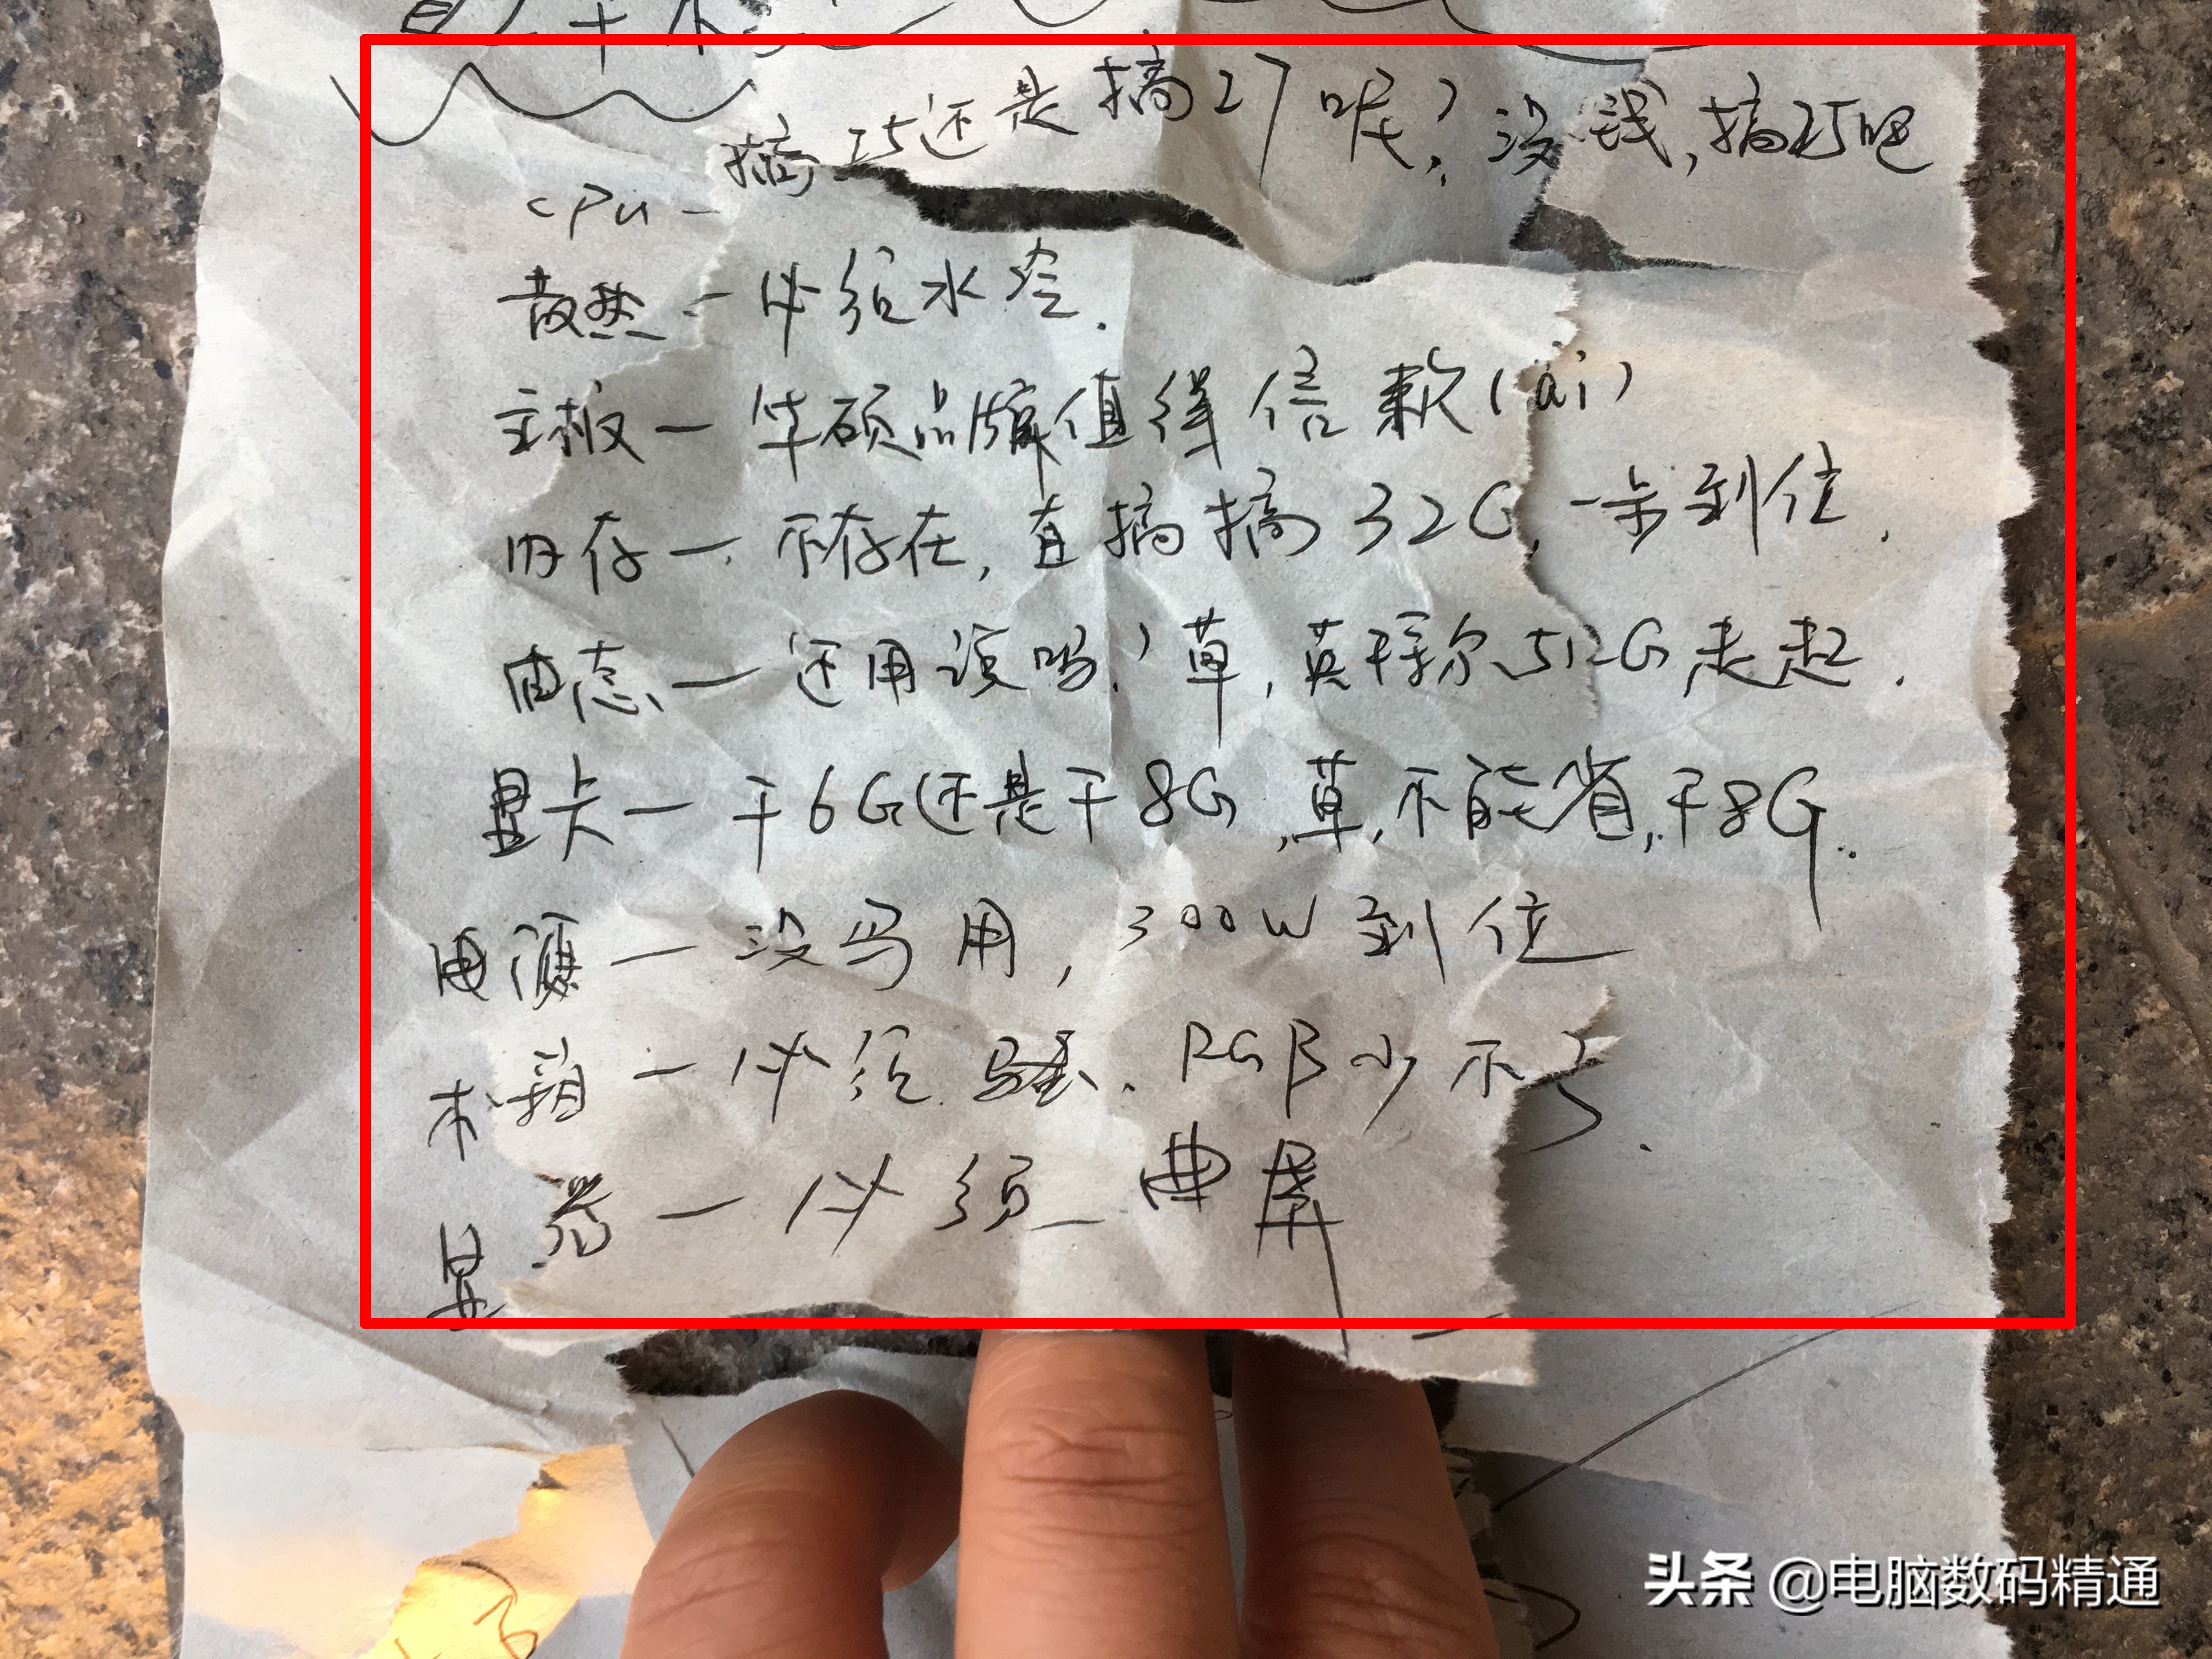 搞i5还是搞i7呢?没钱,搞i5吧
cpu一
散热一必须水冷.
主板一华硕品牌值得信赖(ai)
内存一不存在,直搞搞32G,一步到位.
固态一还用说吗?草,英特尔512G走起.
显卡一干6G还是干8G,草,不能省,干8G..
电源一没鸟用,300W到位
机箱一必须骚.RGB少不了.
显示器一必须曲屏
头条 @电脑数码精通